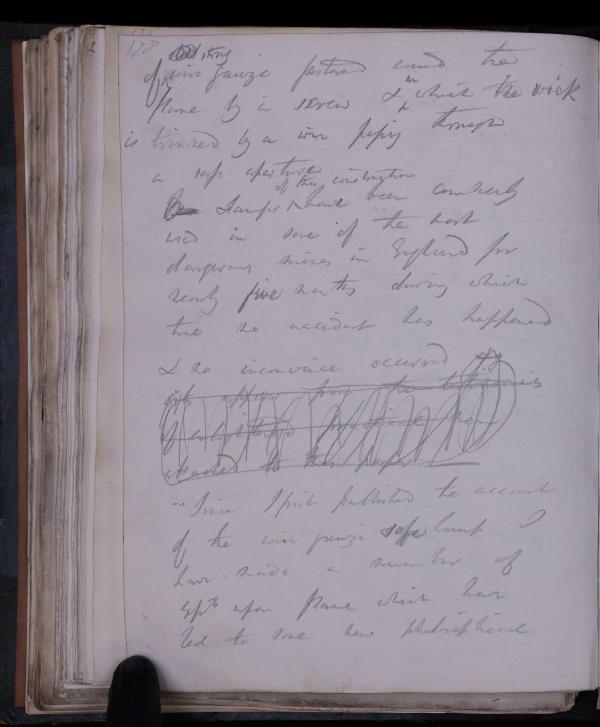 178
strong
of wire gauze fastened round the
flame by a screw & in which the wick
is trimmed by a wire passing through
a safe aperture
of this construction
Lamps have been constantly
used in some of the most
dangerous mines in England for
nearly five months during which
time no accident has happened
& no inconvenience occurred
from the
attached to this paper
Since I first published the account
of the wire gauze safe lamp I
have made a number of
expts upon flame which have
led to some new philosophical